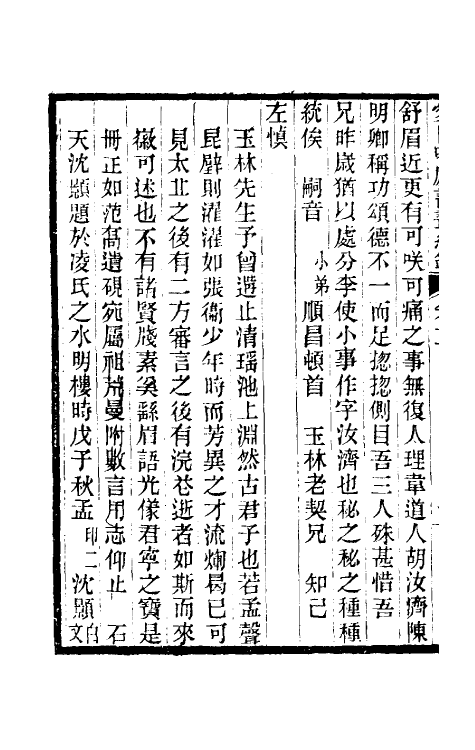 舒眉近更有可咲可痛之事無復人理韋道人胡汝濟陳
明卿稱功頌德不一而足揔揔側目吾三人殊甚惜吾
兄昨歲猶以處分李使小事作字汝濟也秘之秘之種種
統俟　嗣音　小弟順昌頓首　玉林老契兄　知己
左慎
玉林先生予曾遡止清瑶池上淵然古君子也若孟聲
昆壁則濯濯如張衞少年時而芳異之才流爛曷已可
見太北之後有二方審言之後有浣花逝者如斯而來
徽可述也不有諸賢牋素奚繇眉語光像君寧之寶是
冊正如范喬遺硯宛屬祖荒曼附數言用志仰止　石
天沈顥題於凌氏之水明樓時戊子秋孟　印二沈顥白文